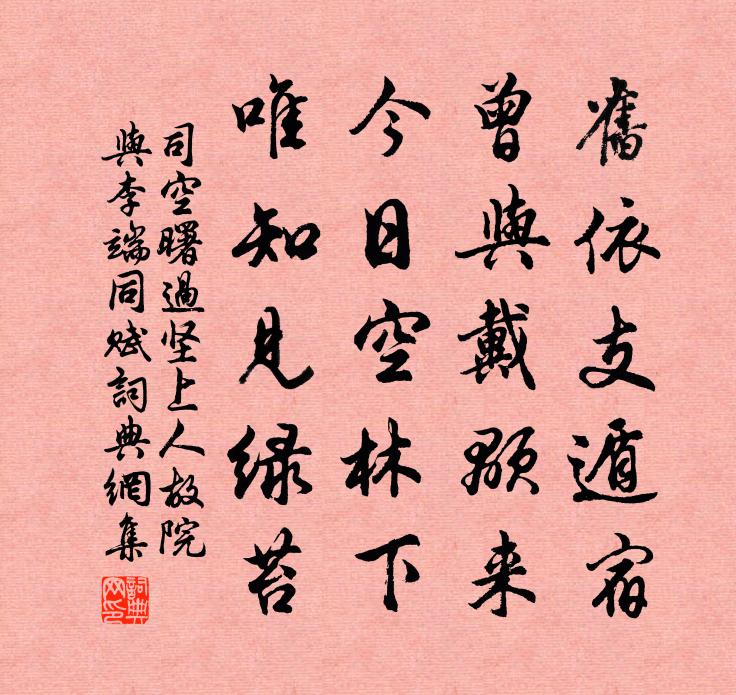 舊依支遁宿
曾與戴顒來
今日空林下
唯知見绿苔
司空曙過坚上人故院
與李端同赋詞典網集
詞典網印